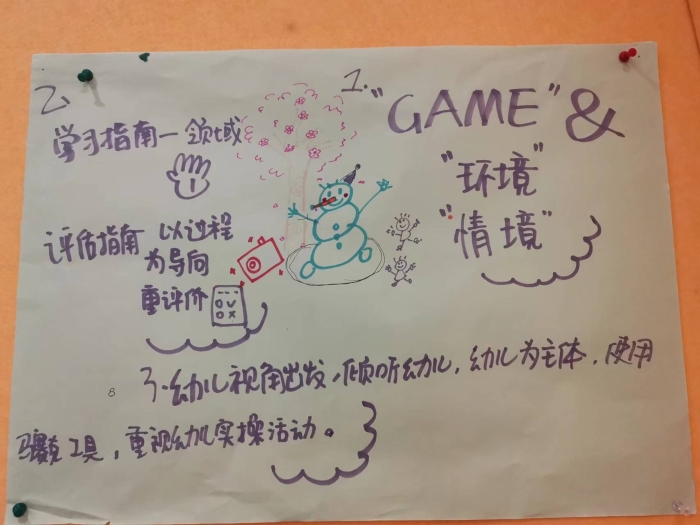 1. "GAME" &
"环境"
"情境"
2、
学习指南一领域
评估指南 以过程
为导向
重评价
3.幼儿视角出发,倾听幼儿,幼儿为主体,使用
工具,重视幼儿实操活动。